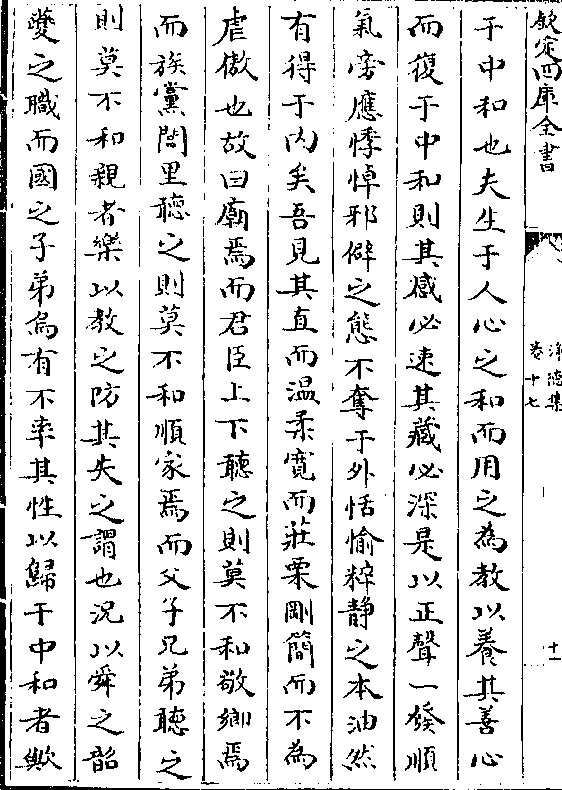 欽定四庫全書
淨德集
卷十七
十一
于中和也夫生于人心之和而用之為教以養其善心
而復于中和則其感必速其藏必深是以正聲一發順
氣旁應悸悼邪僻之態不奪于外恬愉粹静之本油然
有得于内矣吾見其直而温柔寛而莊栗剛簡而不為
虐傲也故曰廟焉而君臣上下聽之則莫不和敬鄉焉
而族黨閭里聽之則莫不和順家焉而父子兄弟聽之
則莫不和親者樂以教之防其失之謂也況以舜之韶
夔之職而國之子弟為有不率其性以歸于中和者歟